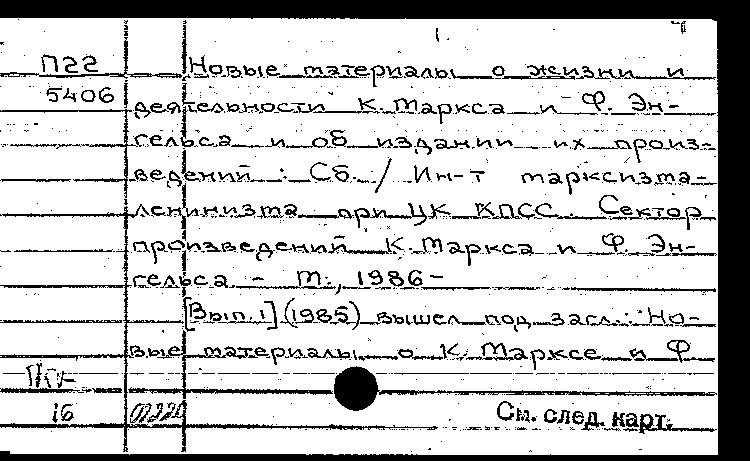 1.
П22 Новые материалы о жизни и
5406 деятельности К. Маркса и Ф. Эн-
гельса и об издании их произ-
ведений : Сб. / Ин-т марксизма-
ленинизма при ЦК КПСС. Сектор
произведений К. Маркса и Ф. Эн-
гельса - М., 1986-
[Вып. 1] (1985) вышел под загл.: Но-
вые материалы о К. Марксе и Ф.
16 См. след. карт.